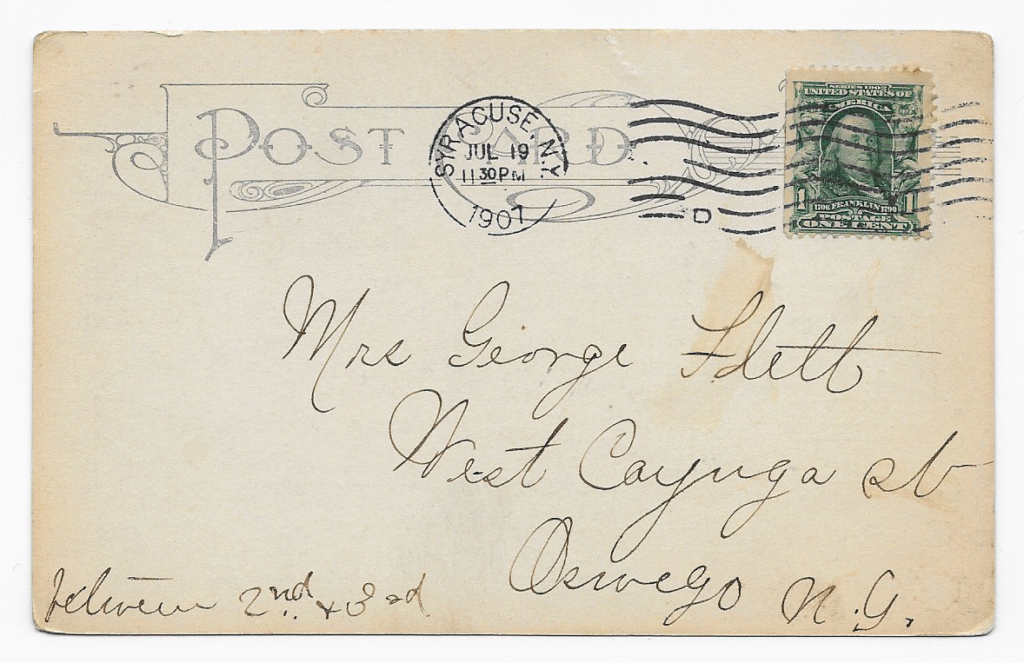 POST CARD
SYRACUSE, N.Y.
JUL 19
11 30 PM
1907
D
SERIES 1902
UNITED STATES OF
AMERICA
1706 FRANKLIN 1790
1 1
POSTAGE
ONE CENT
Mrs George Flett
West Cayuga st
Oswego N.Y.
between 2nd. + 3rd